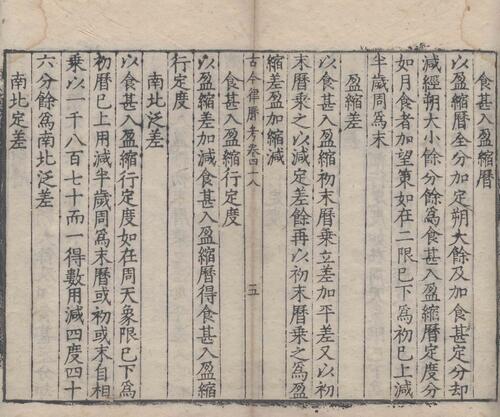 食甚入盈縮曆
以盈縮曆全分加定朔大餘及加食甚定分却
減經朔大小餘分餘爲食甚入盈縮曆定度分
如月食者加望策如在二限已下爲初已上減
半歲周爲末
盈縮差
以食甚入盈縮初末曆乗立差加平差又以初
末曆乗之以減定差餘再以初末曆乗之爲盈
縮差盈加縮減
古今律曆考卷四十八
五
食甚入盈縮行定度
以盈縮差加減食甚入盈縮曆得食甚入盈縮
行定度
南北泛差
以食甚入盈縮行定度如在周天象限已下爲
初曆已上用減半歲周爲末曆或初或末自相
乗以一千八百七十而一得數用減四度四十
六分餘爲南北泛差
南北定差